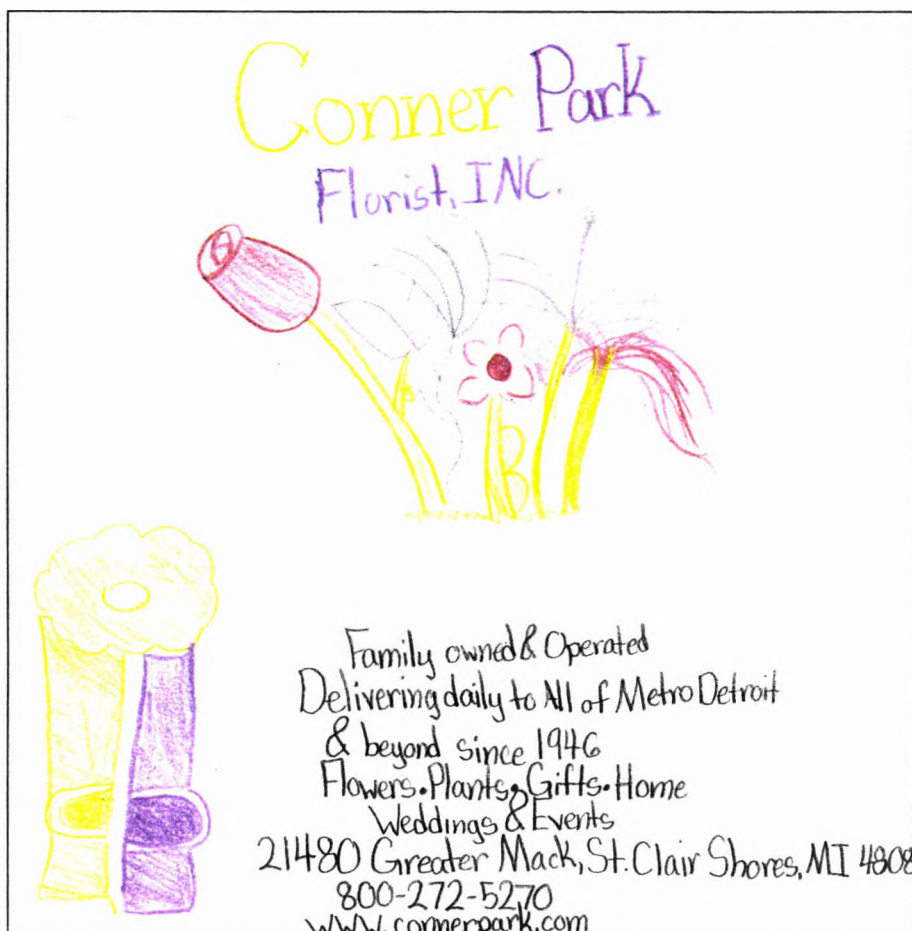 Conner Park
Florist, INC.
Family owned & Operated
Delivering daily to All of Metro Detroit
& beyond since 1946
Flowers.Plants.Gifts.Home
Weddings & Events
21480 Greater Mack, St. Clair Shores, MI 4808
800-272-5270
www.connerpark.com